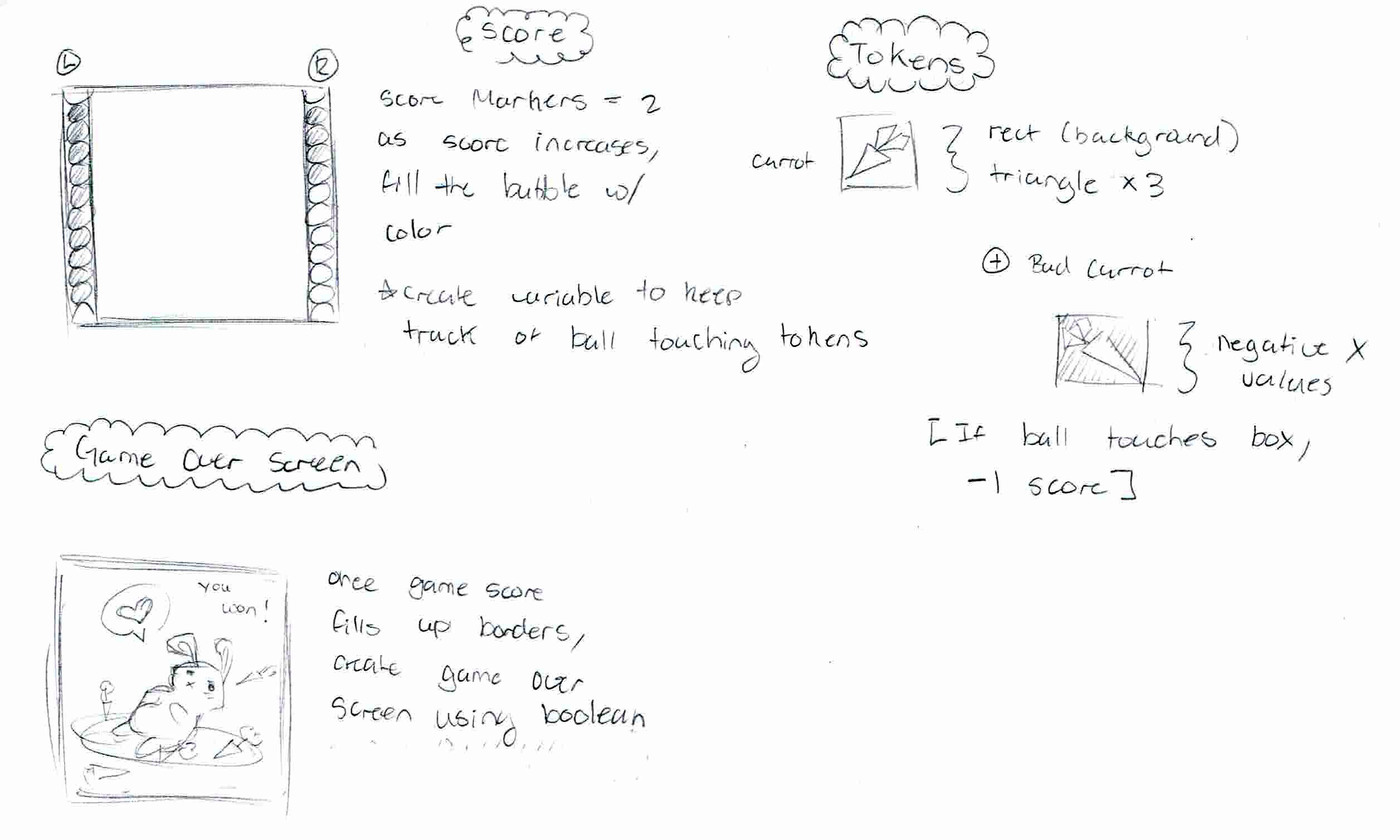 Score
L
R
Score Markers = 2
as score increases,
fill the bubble w/
color
☆ create variable to keep
track of ball touching tokens
Tokens
carrot
rect (background)
triangle x 3
+ Bad carrot
negative x
values
[If ball touches box,
-1 score]
Game Over Screen
you
won!
once game score
fills up borders,
create game over
screen using boolean